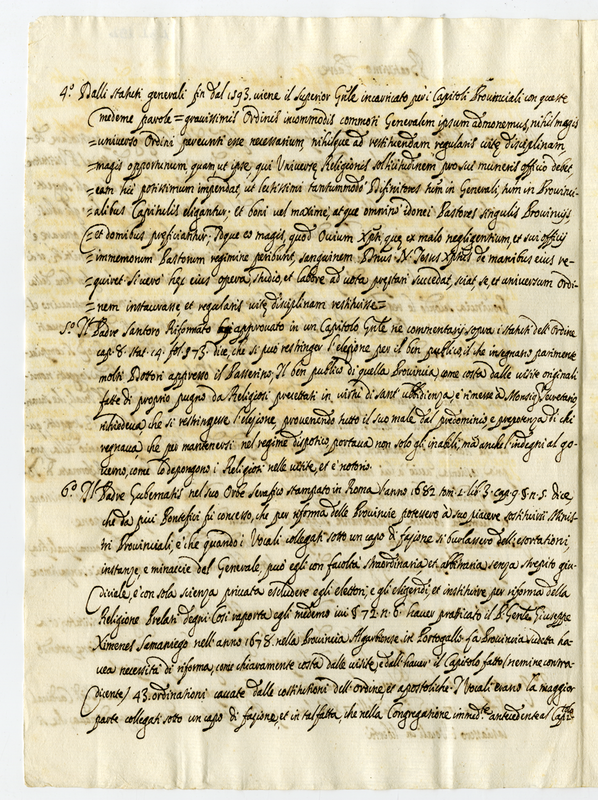 4.° Dalli statuti generali fin dal 1593. viene il Superior Gñle incaricato per i Capitoli Provinciali con queste
medeme parole = gravissimis Ordinis incommodis commoti Generalem ipsum admonemus, nihil magis
= universo Ordini pereunti esse necessarium, nihilque ad restituendam regularis vitę disciplinam
= magis opportunum quam ut ipse, qui Universę Religionis solicitudinem pro sui muneris officio debet
= eam hic potissimum impendat, ut lectissimi tantummodò Ddefinitores tùm in Generali, tùm in Provinci-
= alibus Capitulis eligantur, et boni vel maximè, atque omninò idonei Pastores singulis Provincijs
= et domibus pręficiantur. Idque eo magis, quod Ovium Xpti, quę ex malo negligentium, et sui officij
= immemorum Pastorum regimine peribunt, sanguinem Dñus N. Jesus Xptus de manibus eius re-
= quiret. Si verò hęc eius opera, studio, et labore ad vota pręstari succedat, sciat se, et universum Ordi-
= nem instaurasse et regularis vitę disciplinam restituisse =
5.° Il Padre Santoro Riformato approvato in un Capitolo Gñle ne commentarij sopra i statuti dell'Ordine
cap. 8. stat. 19. fol. 573. dice, che si può restringer l'elezione per il ben publico, il che insegnano parimente
molti Dottori appresso il Passerino. Il ben publico di quella Provincia, come costa dalle visite originali
fatte di proprio pugno da Religiosi precettati in virtù di sant'ubbidienza, e rimesse à Monsig.r Secretario
richiedeva che si restringesse l'elezione, provenendo tutto il suo male dal predominio, e prepotenza di chi
regnava che per mantenersi nel regime dispotico, portava non solo gli inabili, mà anche l'indegni al go-
verno, come lo depongono i Religiosi nelle visite, et è notorio.
6.° Il Padre Gubernatis nel suo Orbe Serafico stampato in Roma l'anno 1682 tom. 2. lib. 3. cap. 98. n. 5. dice,
che da più Pontefici fù concesso, che per riforma delle Provincie potessero à suo piacere sostituire Minis-
tri Provinciali, e che quando i Vocali collegati sotto un capo di fazione si burlassero dell'esortationi,
instanze, e minaccie del Generale, può egli con facoltà straordinaria et abbinaria senza strepito giu-
diciale, e con sola scienza privata escludere egli elettori, e gli eligendi, et instituire per riforma della
Religione Prelati degni. Così raporta egli medemo ivi § 72. n. 6. haver praticato il P. Gente Giuseppe
Ximenez Samaniego nell'anno 1678. nella Provincia Algarviense in Portogallo. La Provincia sudetta ha-
vea necessità di riforma, come chiaramente costa dalle visite, e dall'haver il Capitolo fatto (nemine contra-
dicente) 43. ordinationi cavate dalle costitutioni dell'ordine, et apostoliche. I Vocali erano la maggior
parte collegati sotto un capo di fazione, et in tal fatta, che nella Congregatione immed.te antecedente al Cap.lo